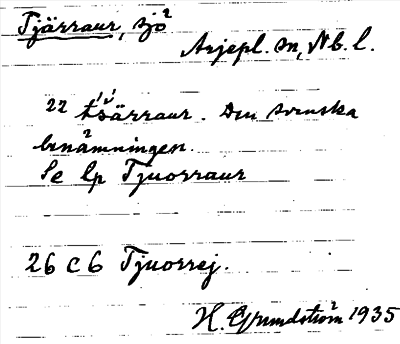 Tjärraur, sjö
Arjepl. sn, Nb. l.
22 tsä̀rraur. Den svenska
benämningen.
Se lp Tjuorraur
26 C 6 Tjuorrej.
H. Grundström 1935